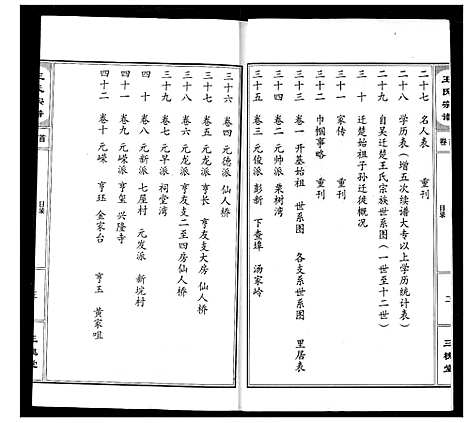 王氏宗谱
卷首
目录
二
三槐堂
二十七 名人表 重刊
二十八 学历表（增五次续谱大专以上学历统计表）
二十九 自吴迁楚王氏宗族世系图（一世至十二世）
三十 迁楚始祖子孙迁徙概况
三十一 家传 重刊
三十二 巾帼事略 重刊
三十三 卷一 开基始祖 世系图 各支系世系图 里居表
三十四 卷二 元帅派 栗树湾
三十五 卷三 元俊派 彭新 下查埠 汤家岭
三十六 卷四 元德派 仙人桥
三十七 卷五 元龙派 亨长 亨友支大房 仙人桥
三十八 卷六 元龙派 亨友支二至四房仙人桥
三十九 卷七 元早派 祠堂湾
四十 卷八 元新派 七屋村 元发派 新垸村
四十一 卷九 元嵘派 亨玺 兴隆寺
四十二 卷十 元嵘 亨珏 金家台 亨玉 黄家咀
目录
三槐堂